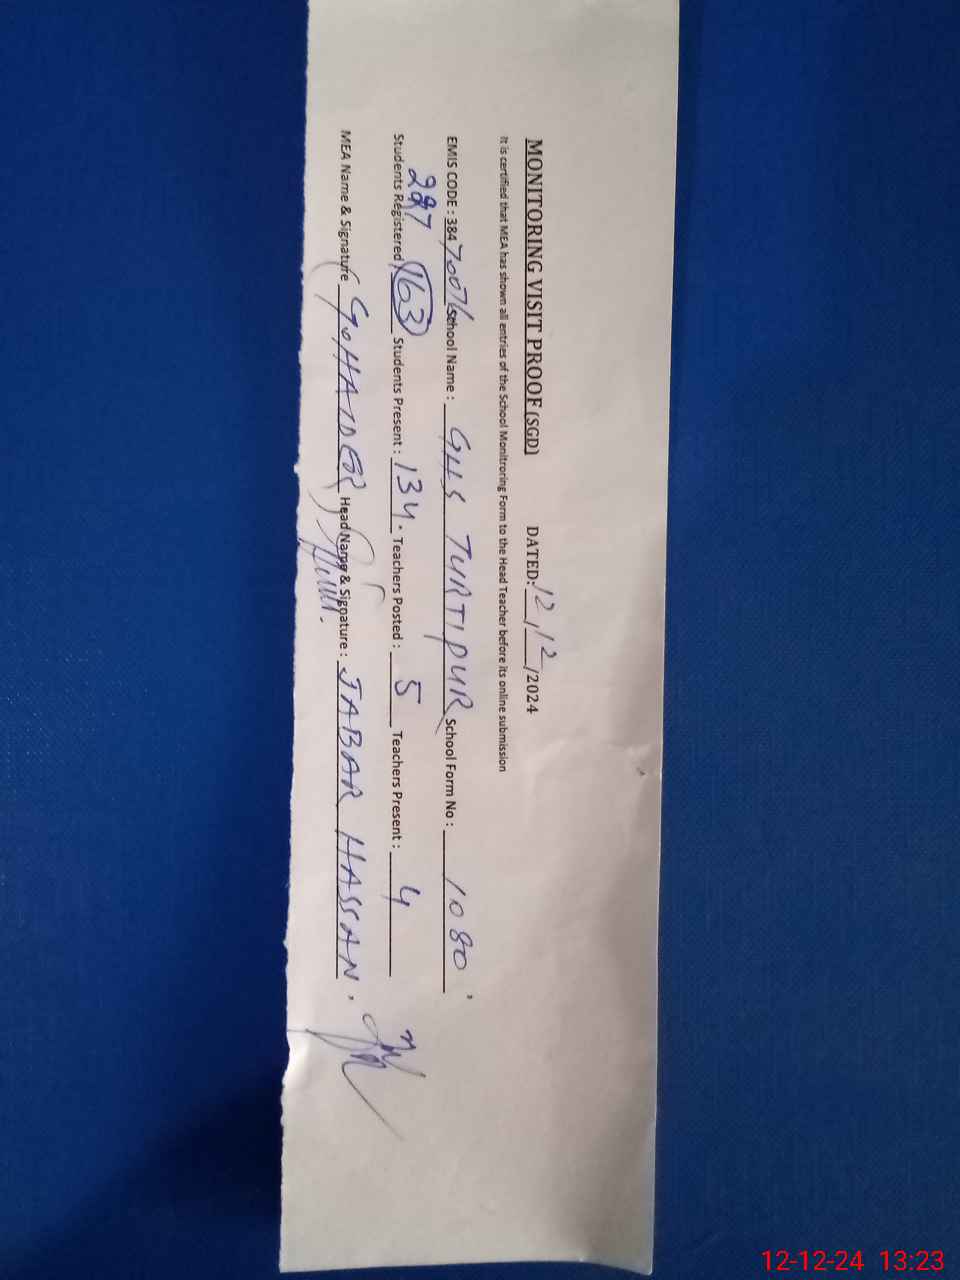 MONITORING VISIT PROOF (SGD) DATED: 12/12/2024
It is certified that MEA has shown all entries of the School Monitroring Form to the Head Teacher before its online submission
EMIS CODE : 384 School Name : GHS TURTIPUR School Form No : 1080
227
Students Registered 163 Students Present : 134 . Teachers Posted : 5 Teachers Present : 4
MEA Name & Signature Head Name & Signature : JABAR HASSAN .
12-12-24 13:23